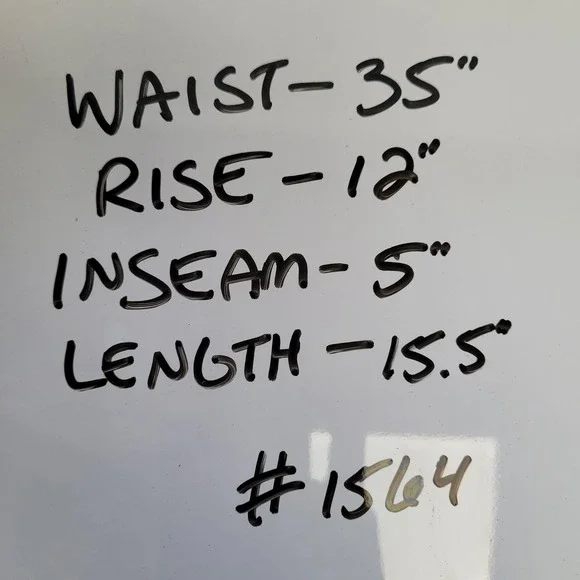 WAIST- 35"
RISE - 12"
INSEAM- 5"
LENGTH - 15.5"
#1564